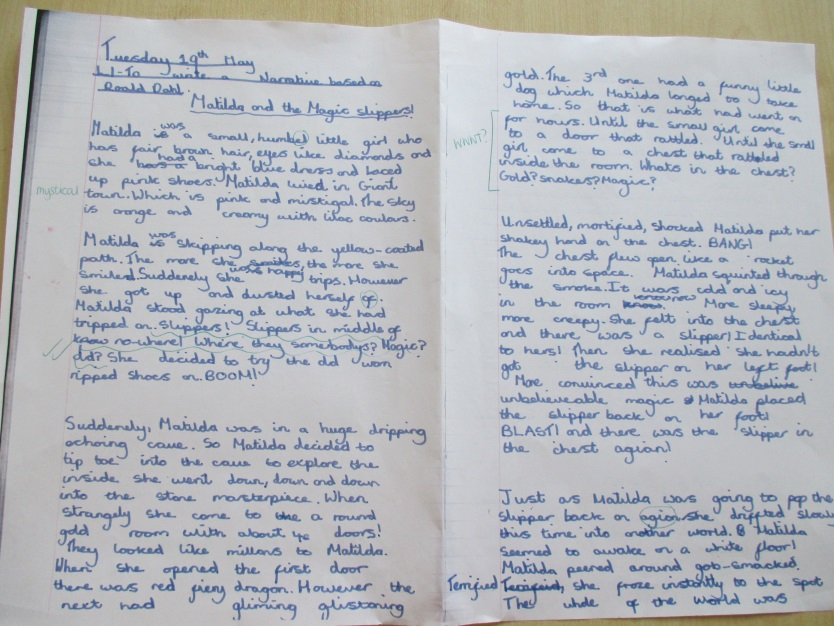 Tuesday 19th May
L.I-To write a Narrative based on
Roald Dahl.
Matilda and the Magic slippers!
Matilda was a small, humbel little girl who
has fair brown hair, eyes like diamonds and
she had a bright blue dress and laced
mystical
up pink shoes. Matilda lived in Giant
town. Which is pink and mistigal. The sky
is orange and creamy with lilac coulours.
Matilda was skipping along the yellow-coated
path. The more she smiles, the more she
was happy
smiled. Suddenly she trips. However
she got up and dusted herself of.
Matilda stood gazing at what she had
tripped on. Slippers! Slippers in middle of
know no-where! Where they somebodys? Magic?
Old? She decided to try the old worn
ripped shoes on..BOOM!
Suddenly, Matilda was in a huge dripping
echoing cave. So Matilda decided to
tip toe into the cave to explore the
inside she went down, down and down
into the stone masterpiece. When
strangely she come to a round
gold room with about 40 doors!
They looked like millons to Matilda.
When she opened the first door
there was red fiery dragon. However the
next had gliming glistoning
gold. The 3rd one had a funny little
dog which Matilda longed to take
home. So that is what had went on
for hours. Until the small girl come
WHAT?
to a door that rattled. Until the small
girl come to a chest that rattled
inside the room. Whats in the chest?
Gold? Snakes? Magic?
Unsettled, mortified, shocked Matilda put her
shakey hand on the chest. BANG!
The chest flew open like a rocket
goes into space. Matilda squinted through
the smoke. It was cold and icy
in the room More sleepy
more creepy. She felt into the chest
and there was a slipper! Identical
to hers! Then she realised she hadn't
got the slipper on her left foot!
More convinced this was
unbelieveable magic Matilda placed
the slipper back on her foot!
BLAST! and there was the slipper in
the chest agian!
Just as Matilda was going to pop the
slipper back on agion she drifted slowly
this time into another world. Matilda
seemed to awake on a white floor!
Matilda peered around gob-smacked.
Terrified, she froze instantly to the spot
The whole of the world was